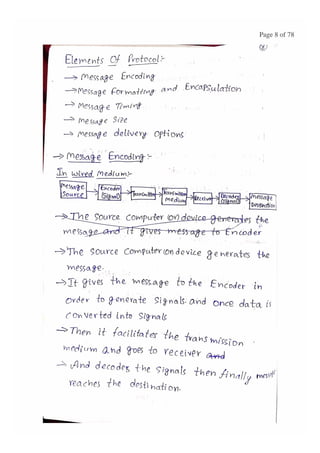 Page 8 of 78
8
Elements Of Protocol:-
→ Message Encoding
→ Message Formatting and Encapsulation
→ Message Timing
→ message Size
→ message delivery options
→ Message Encoding:-
In wired Medium:-
Message Source → Encoder Signal → Transmitter → Transmission Medium → Receiver → Decoder (signal) → Message Destination
→ The source computer (or) device generates the
message and it gives message to Encoder
→ The source computer (or) device generates the
message.
→ It gives the message to the Encoder in
order to generate signals and once data is
converted into signals
→ Then it facilitates the transmission
medium and goes to receiver and
→ And decodes the signals then finally message
reaches the destination.